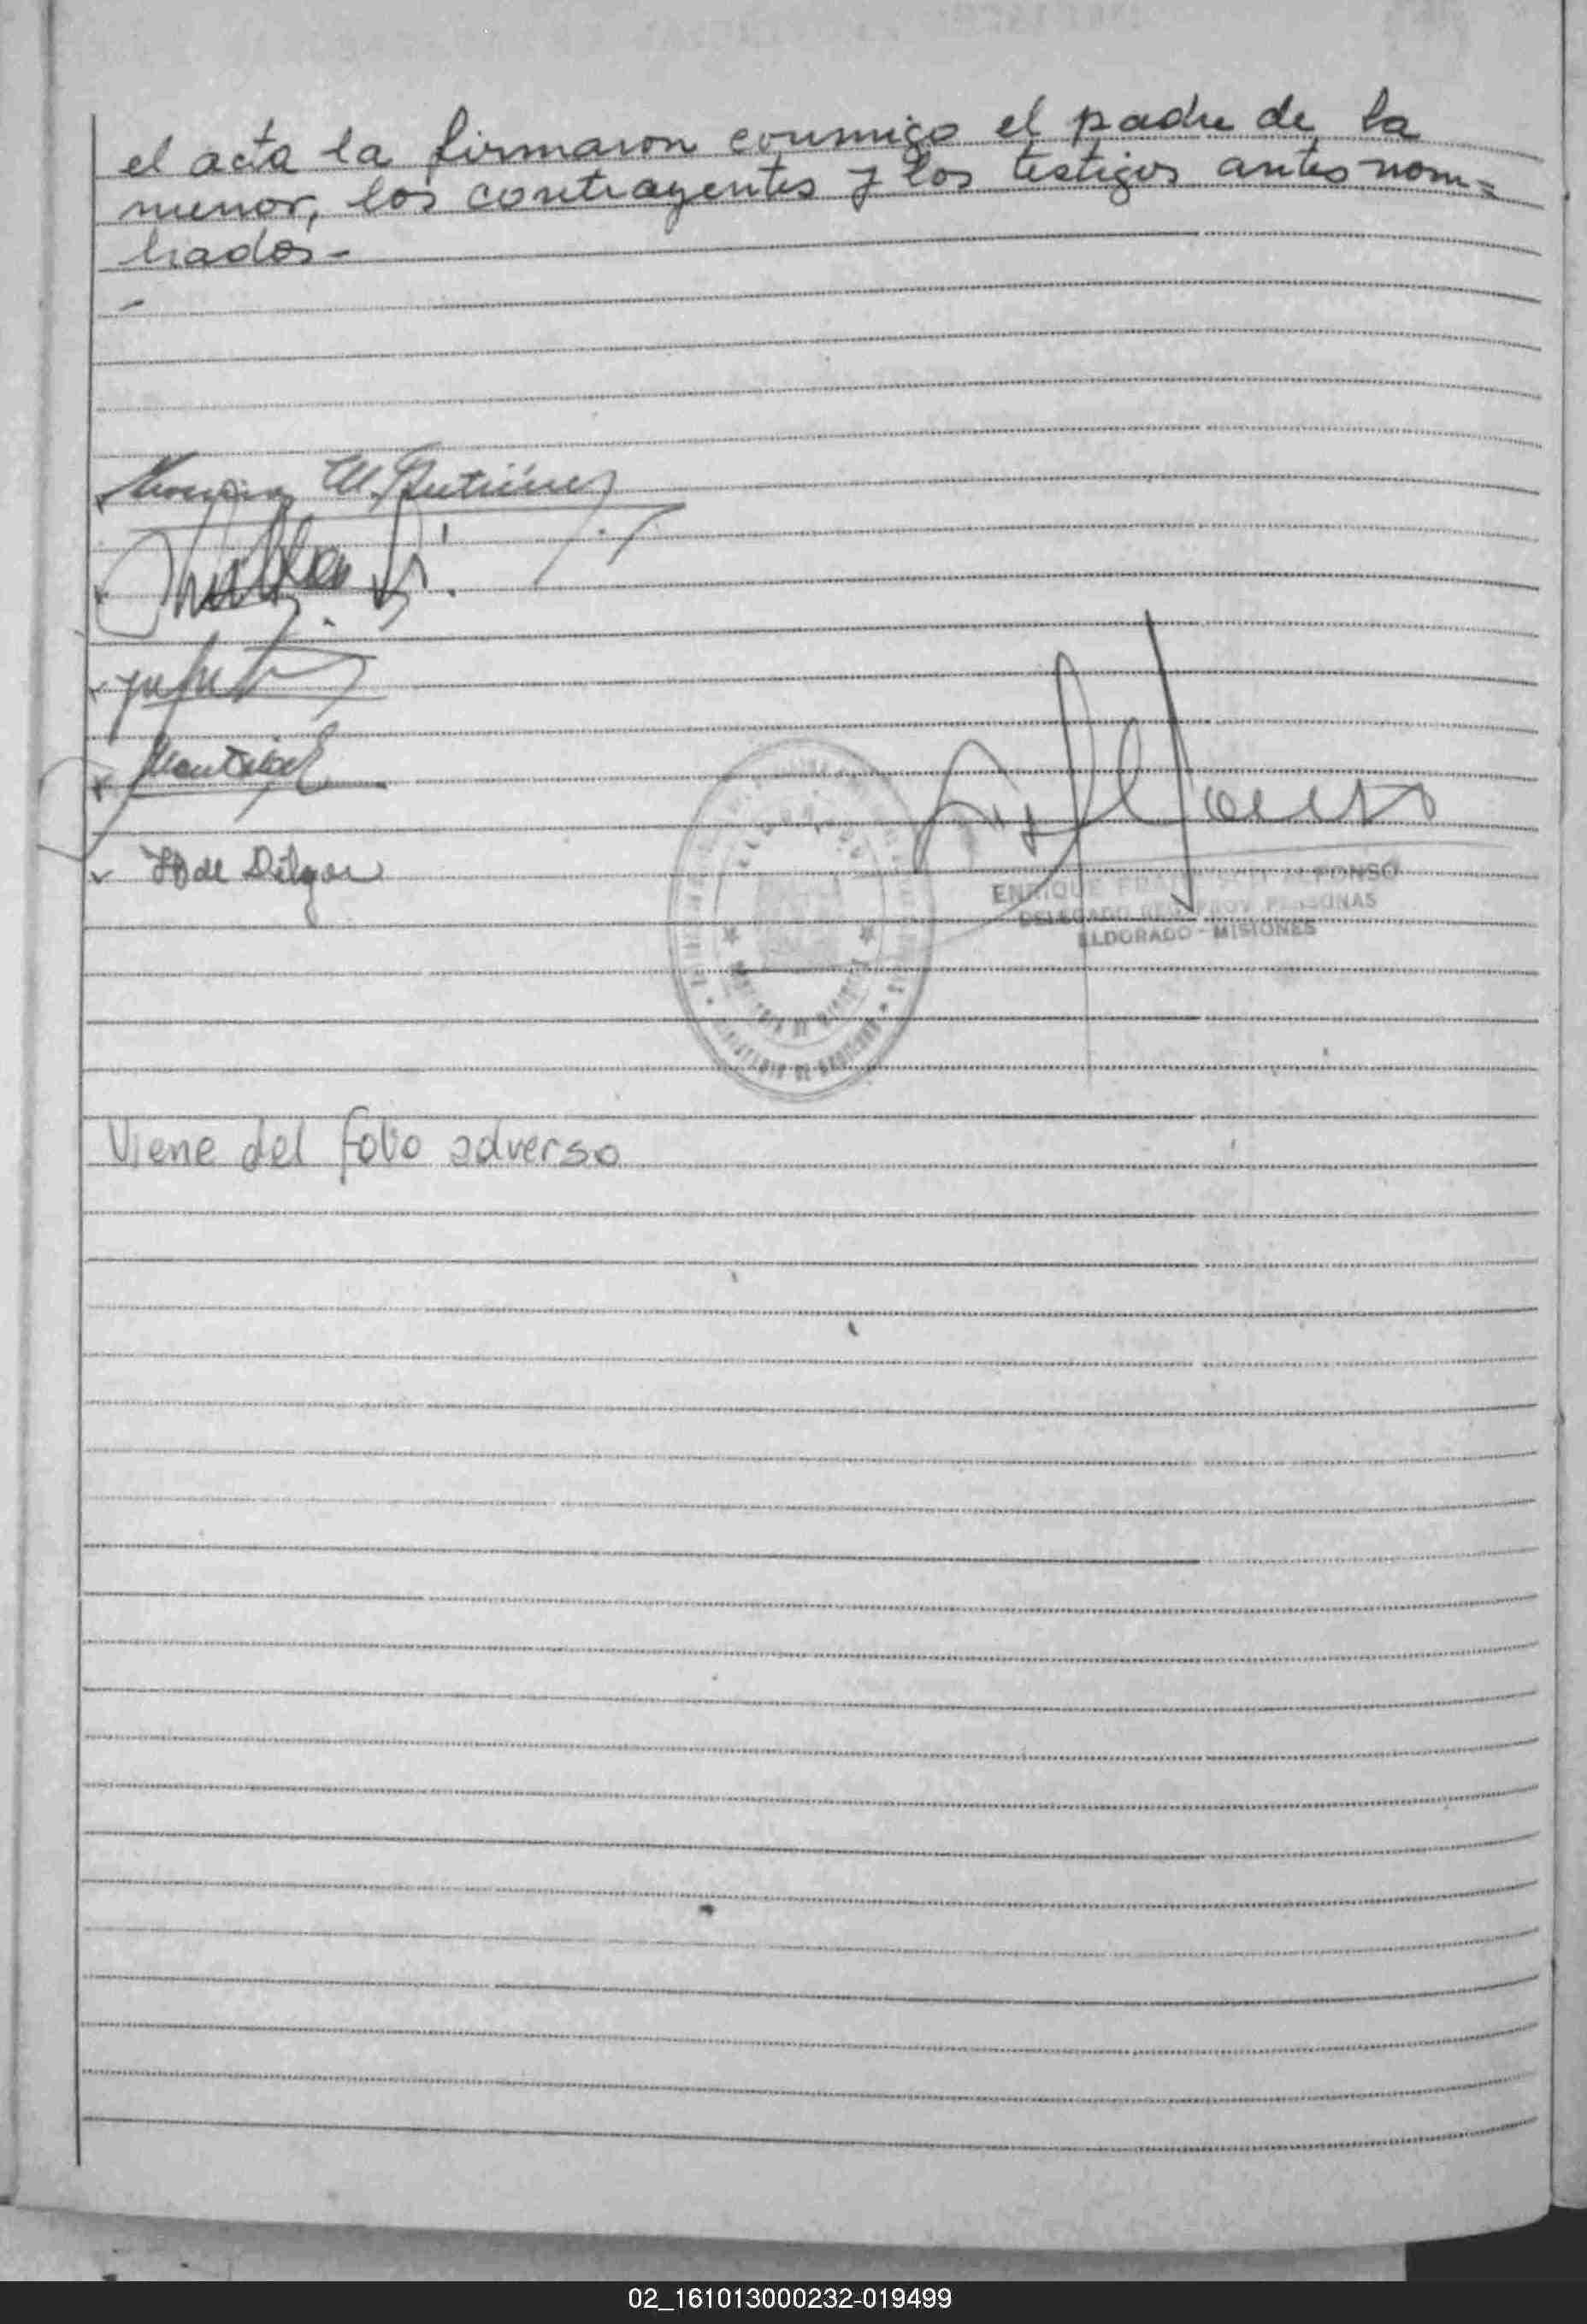 el acta la firmaron conmigo el padre de la
menor, los contrayentes y los testigos antes nom=
brados.-
M. Gutiérrez
H de Dilger
ENRIQUE FRANCISCO ALFONSO
DELEGADO REG. PROV. PERSONAS
ELDORADO - MISIONES
Viene del folio adverso
02_161013000232-019499